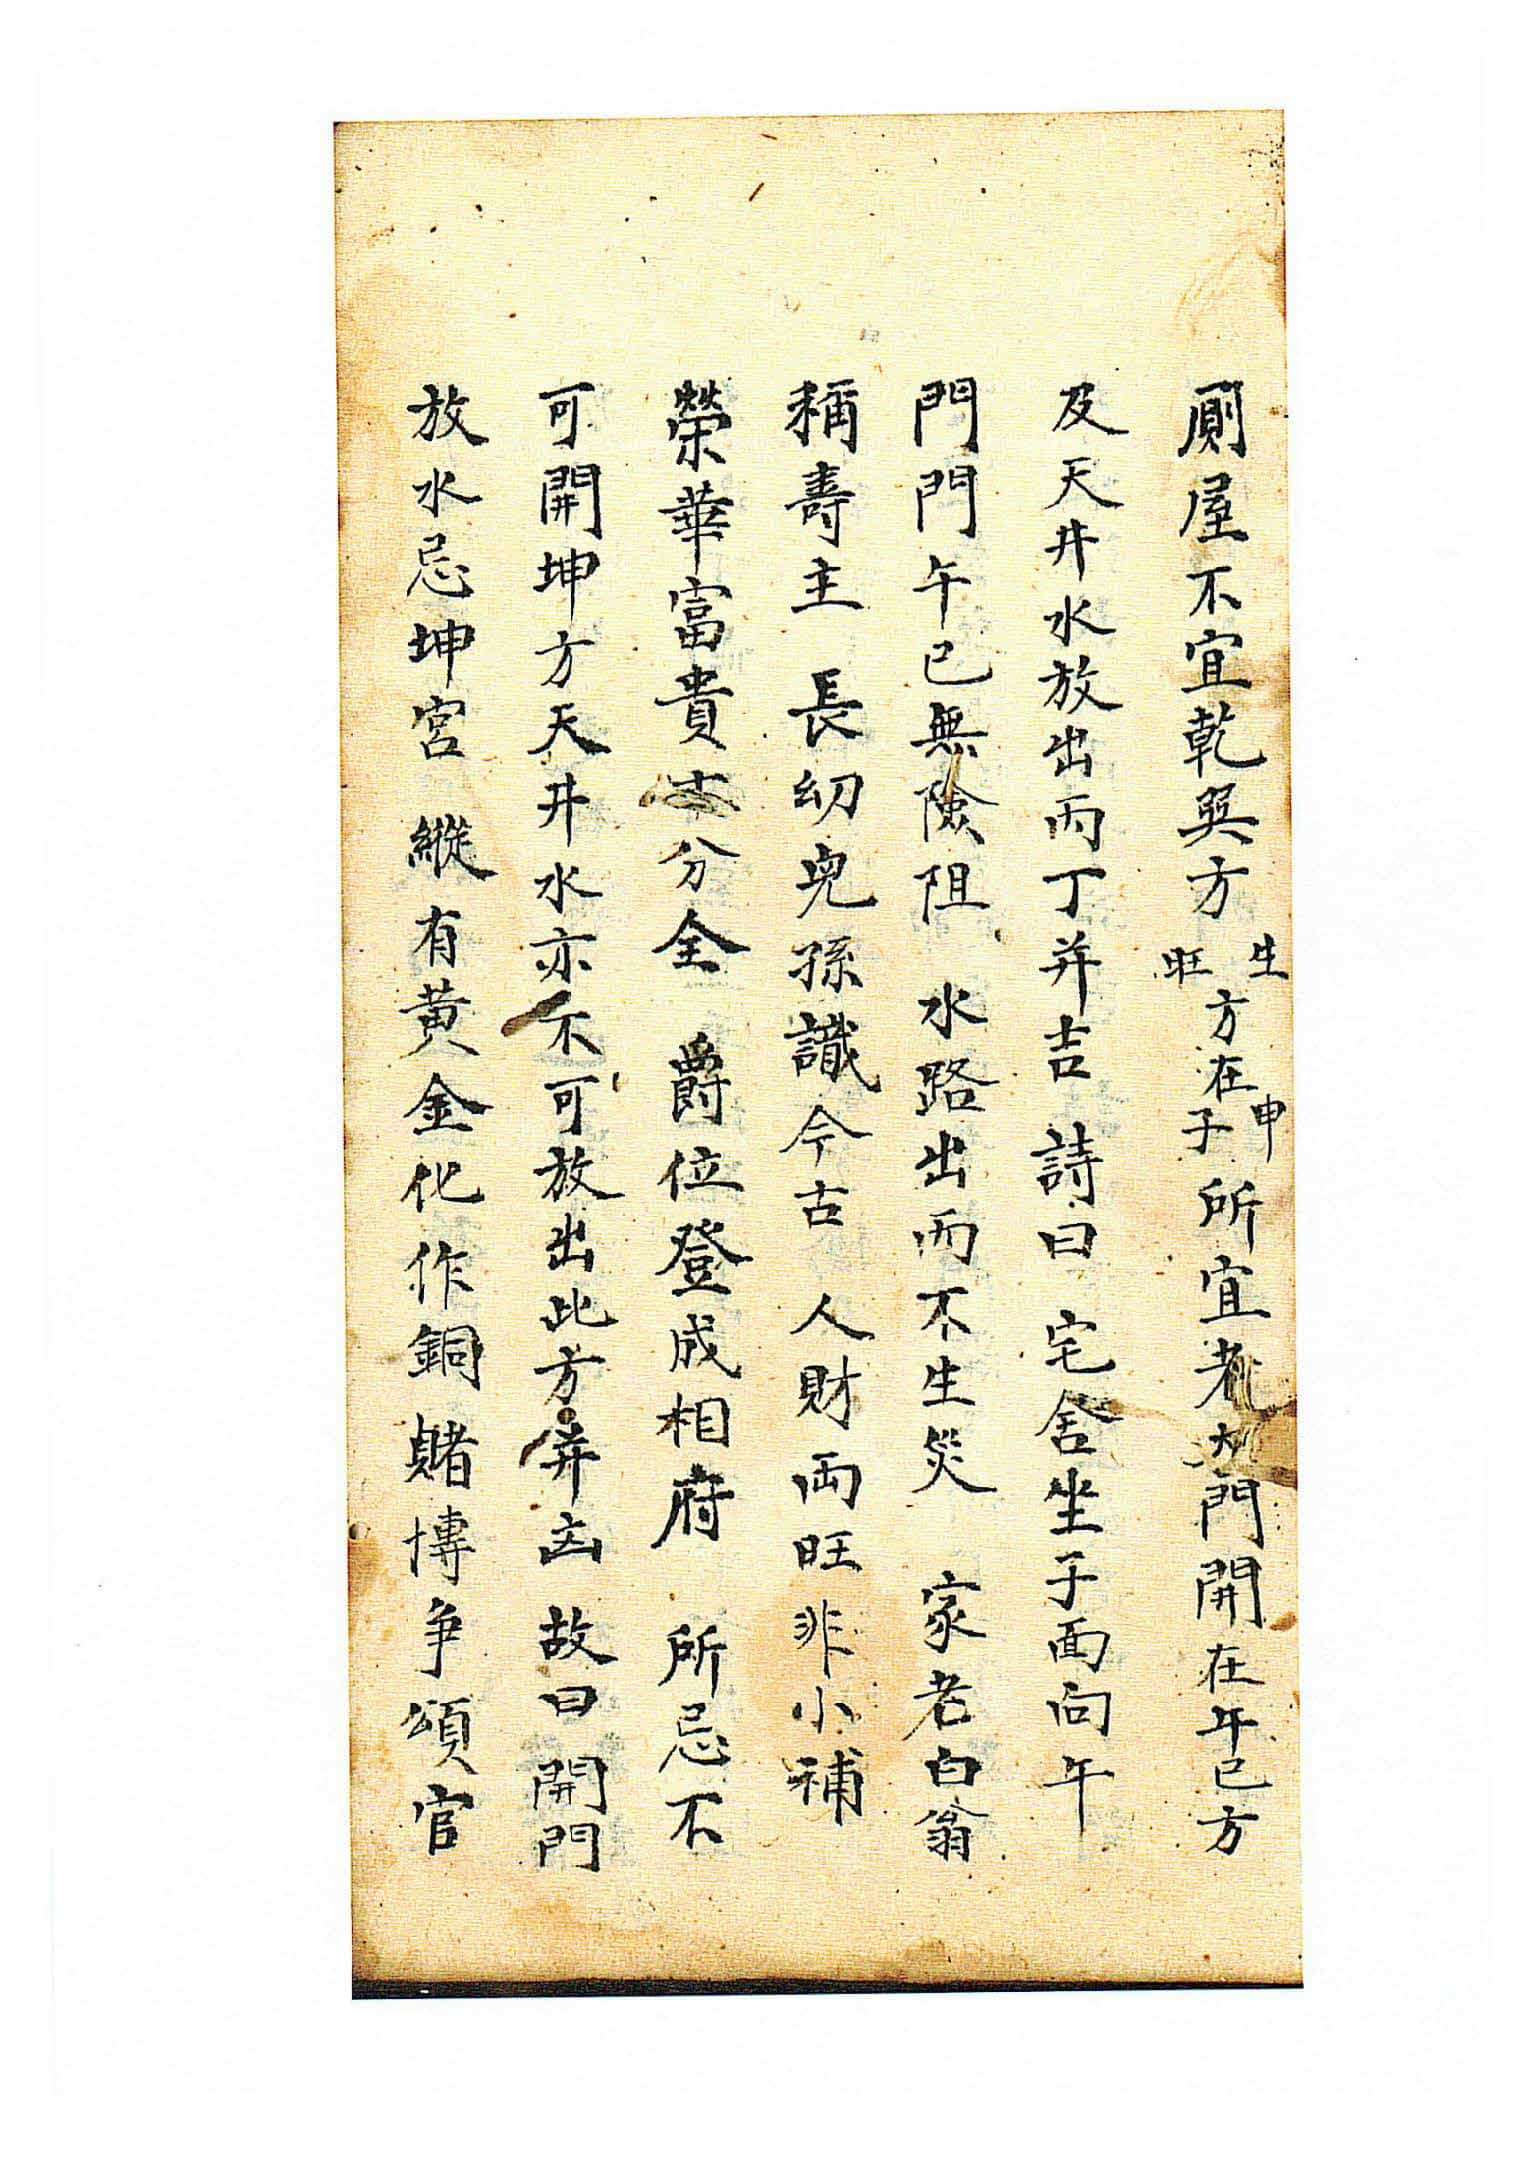 厠屋不宜乾巽方生旺方在申子所宜者大門開在午巳方
及天井水放出丙丁并吉 詩曰 宅舍坐子面向午
門門午巳無險阻 水路出丙不生災 家老白翁
稱壽主 長幼児孫識今古 人財両旺非小補
榮華富貴十分全 爵位登成相府 所忌不
可開坤方天井水亦不可放出此方并凶 故曰 開門
放水忌坤宮 縱有黄金化作銅 賭博争頌官